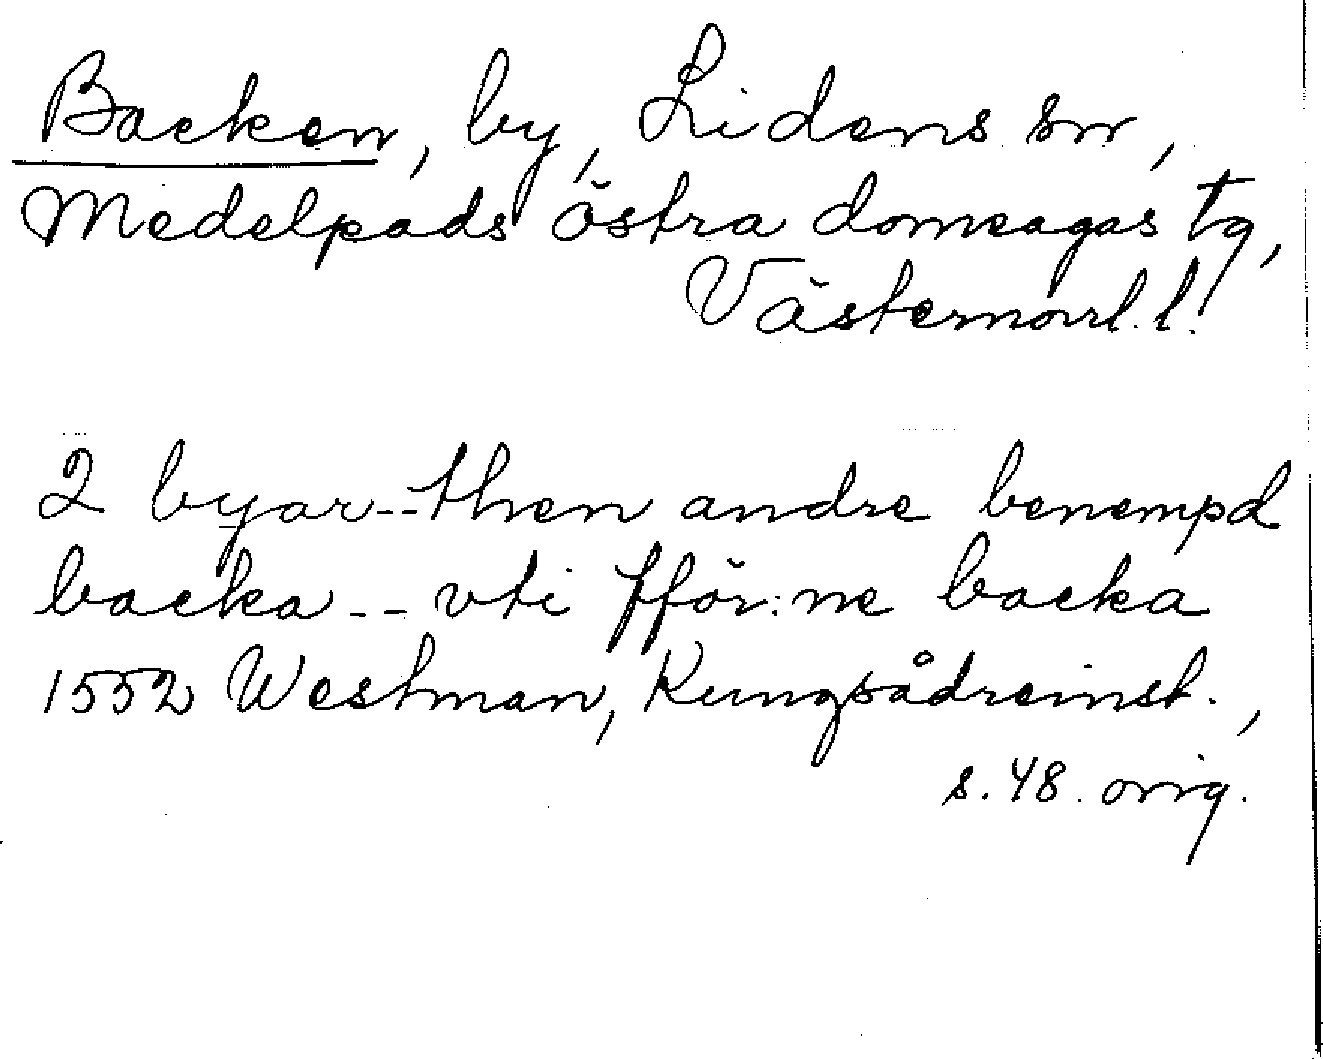 Backen, by, Lidens sn,
Medelpads östra domsagas tg,
Västernorrl. l.
2 byar--then andre benempd
backa -- vti fför:ne backa
1552 Westman, Kungsådreinst.,
s. 48. orig.